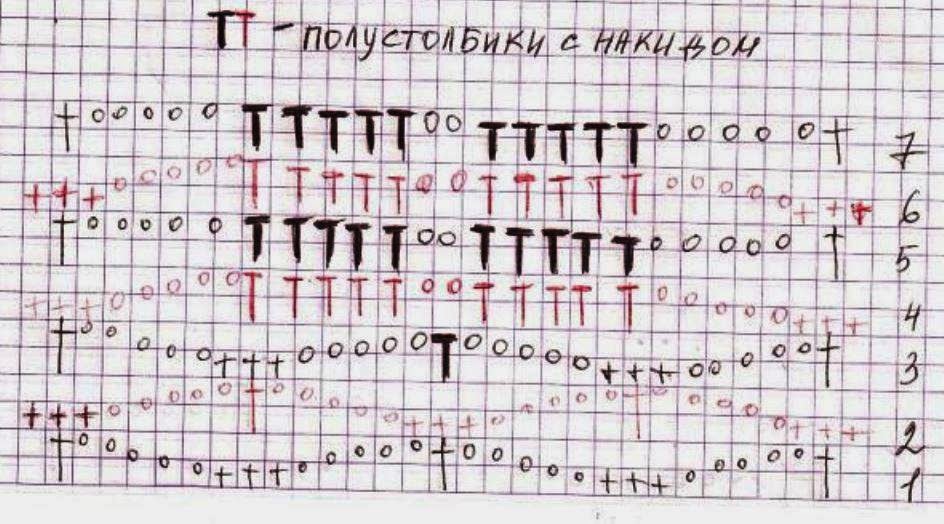 TT - ПОЛУСТОЛБИКИ С НАКИДОМ
7
6
5
4
3
2
1